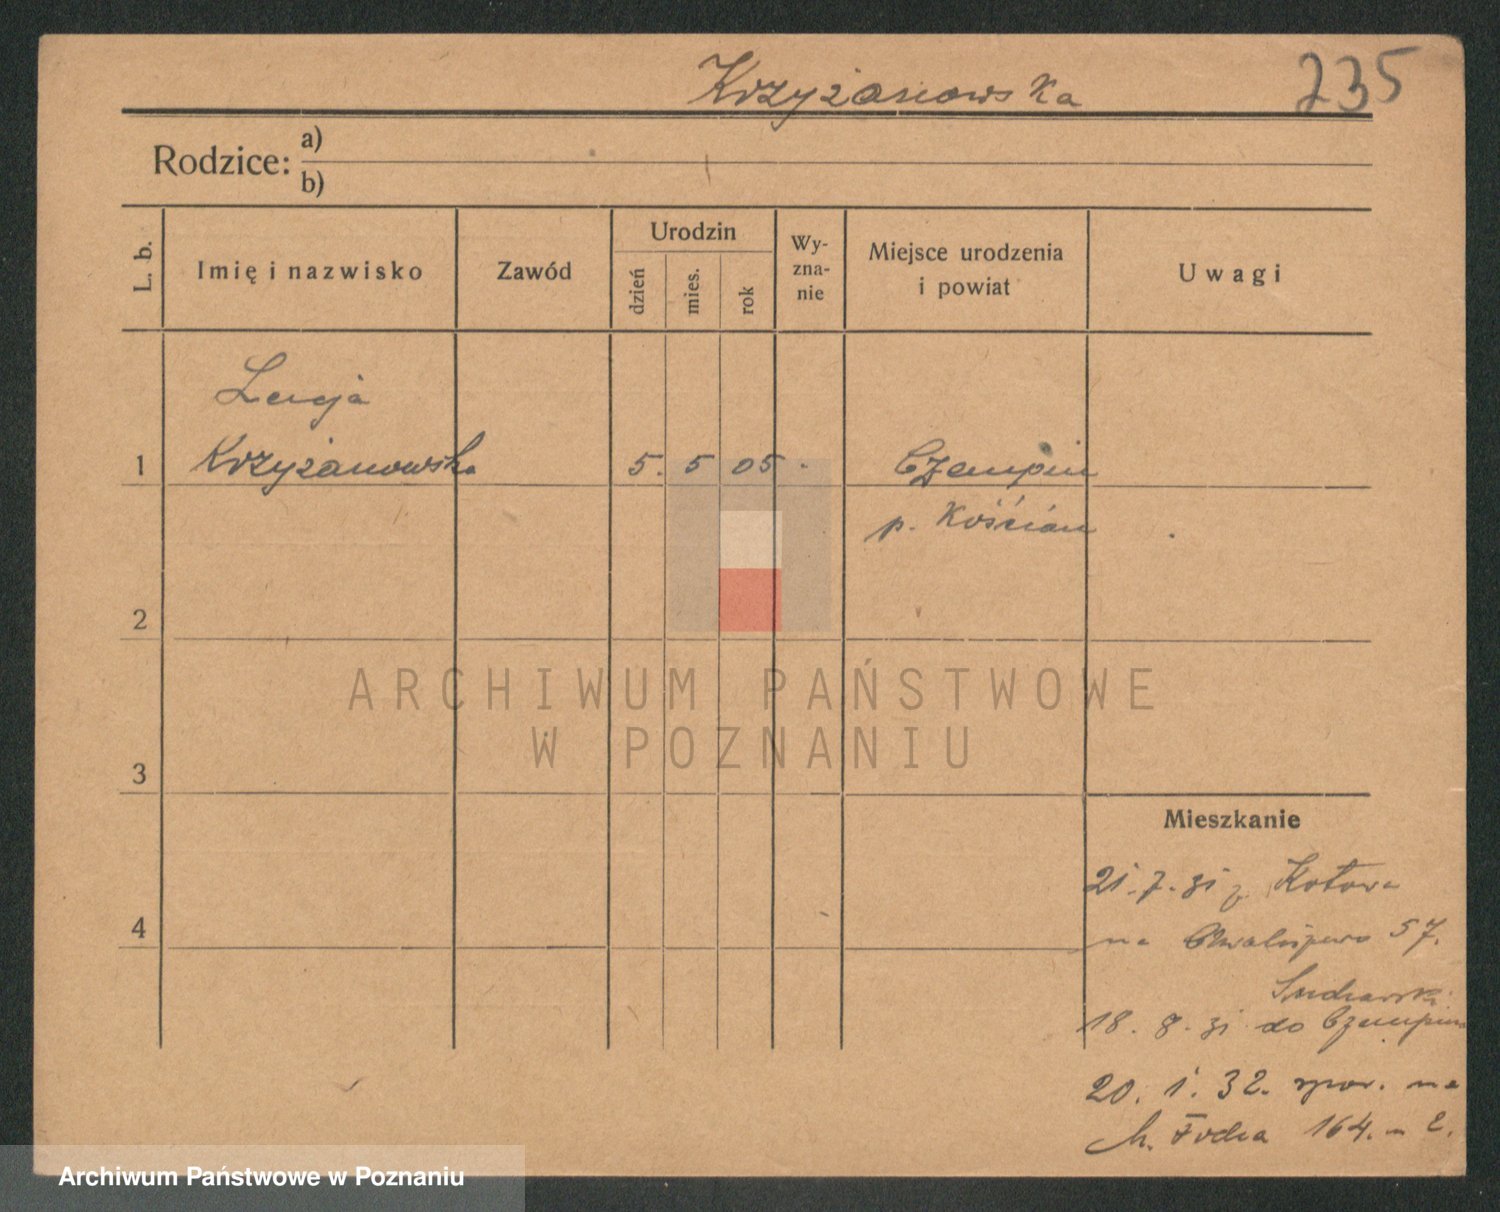 Krzyżanowska 235
Rodzice: a)
b)
L. b.
Imię i nazwisko
Zawód
Urodzin
dzień
mies.
rok
Wy-
zna-
nie
Miejsce urodzenia
i powiat
Uwagi
Lucja
1 Krzyżanowska 5. 5 05 Czempin
p. Kościan
2
ARCHIWUM PAŃSTWOWE
W POZNANIU
3
Mieszkanie
21.7.31 z Kotowa
4
na Chwaliszewo 57.
18. 8. 31 do Czempina
20. 1. 32. na
M. Focha 164.
Archiwum Państwowe w Poznaniu